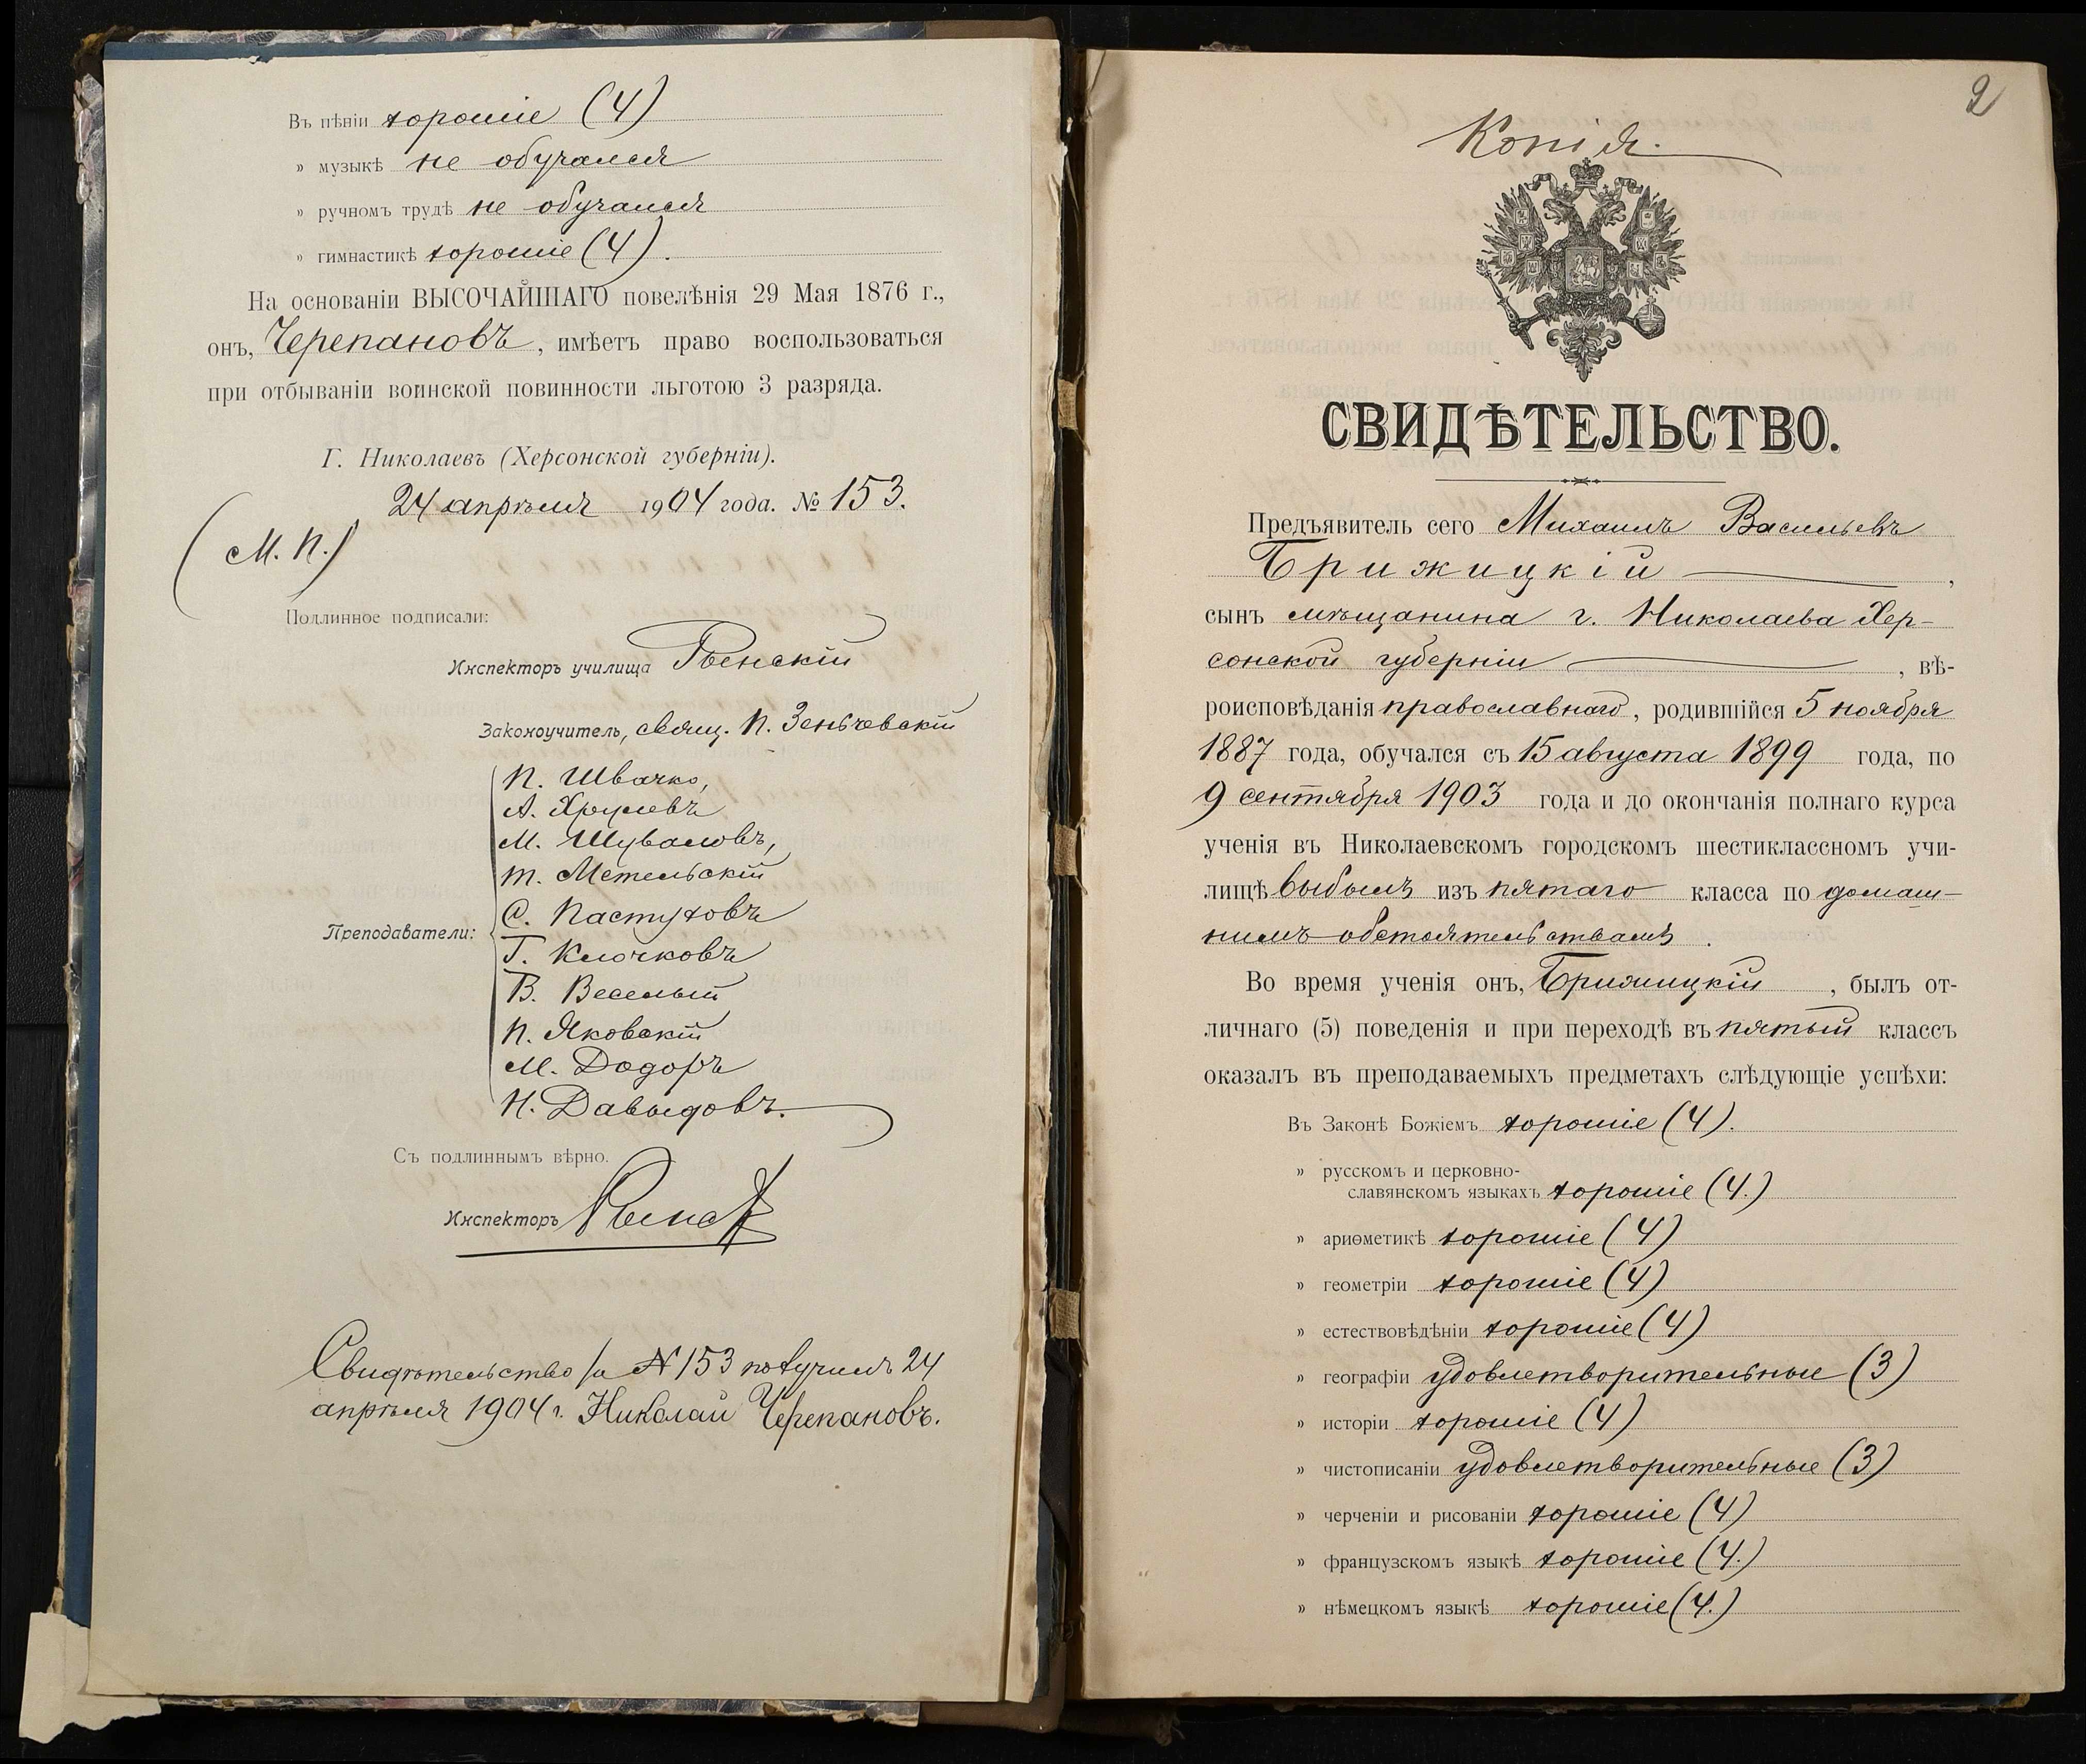 Въ пѣніи хорошіе (4)
» музыкѣ не обучался
» ручномъ трудѣ не обучался
» гимнастикѣ хорошіе (4).
На основаніи ВЫСОЧАЙШАГО повелѣнія 29 Мая 1876 г.,
онъ, Черепановъ, имѣетъ право воспользоваться
при отбываніи воинской повинности льготою 3 разряда.
Г. Николаевъ (Херсонской губерніи).
24 апрѣля 1904 года. № 153.
(М. П.)
Подлинное подписали:
Инспекторъ училища
Законоучитель, свящ. П. Зеньчевскій
П. Швачко,
А. Хрулевъ
М. Шуваловъ,
Т. Метельскій
С. Пастуховъ
Преподаватели:
Г. Клочковъ
В. Веселый
П. Яковскій
М. Додоръ
Н. Давыдовъ.
Съ подлиннымъ вѣрно.
Инспекторъ
Свидѣтельство за № 153 получилъ 24
апрѣля 1904 г. Николай Черепановъ.
2
Копія.
СВИДѢТЕЛЬСТВО.
Предъявитель сего Михаилъ Васильевъ
Брижицкій,
сынъ мѣщанина г. Николаева Хер-
сонской губерніи, вѣ-
роисповѣданія православнаго, родившійся 5 ноября
1887 года, обучался съ 15 августа 1899 года, по
9 сентября 1903 года и до окончанія полнаго курса
ученія въ Николаевскомъ городскомъ шестиклассномъ учи-
лищѣ выбылъ изъ пятаго класса по домаш-
нимъ обстоятельствамъ.
Во время ученія онъ, Брижицкій, былъ от-
личнаго (5) поведенія и при переходѣ въ пятый классъ
оказалъ въ преподаваемыхъ предметахъ слѣдующіе успѣхи:
Въ Законѣ Божіемъ хорошіе (4).
» русскомъ и церковно-
славянскомъ языкахъ хорошіе (4.)
» ариѳметикѣ хорошіе (4)
» геометріи хорошіе (4)
» естествовѣдѣніи хорошіе (4)
» географіи удовлетворительные (3)
» исторіи хорошіе (4)
» чистописаніи удовлетворительные (3)
» черченіи и рисованіи хорошіе (4)
» французскомъ языкѣ хорошіе (4.)
» нѣмецкомъ языкѣ хорошіе (4.)